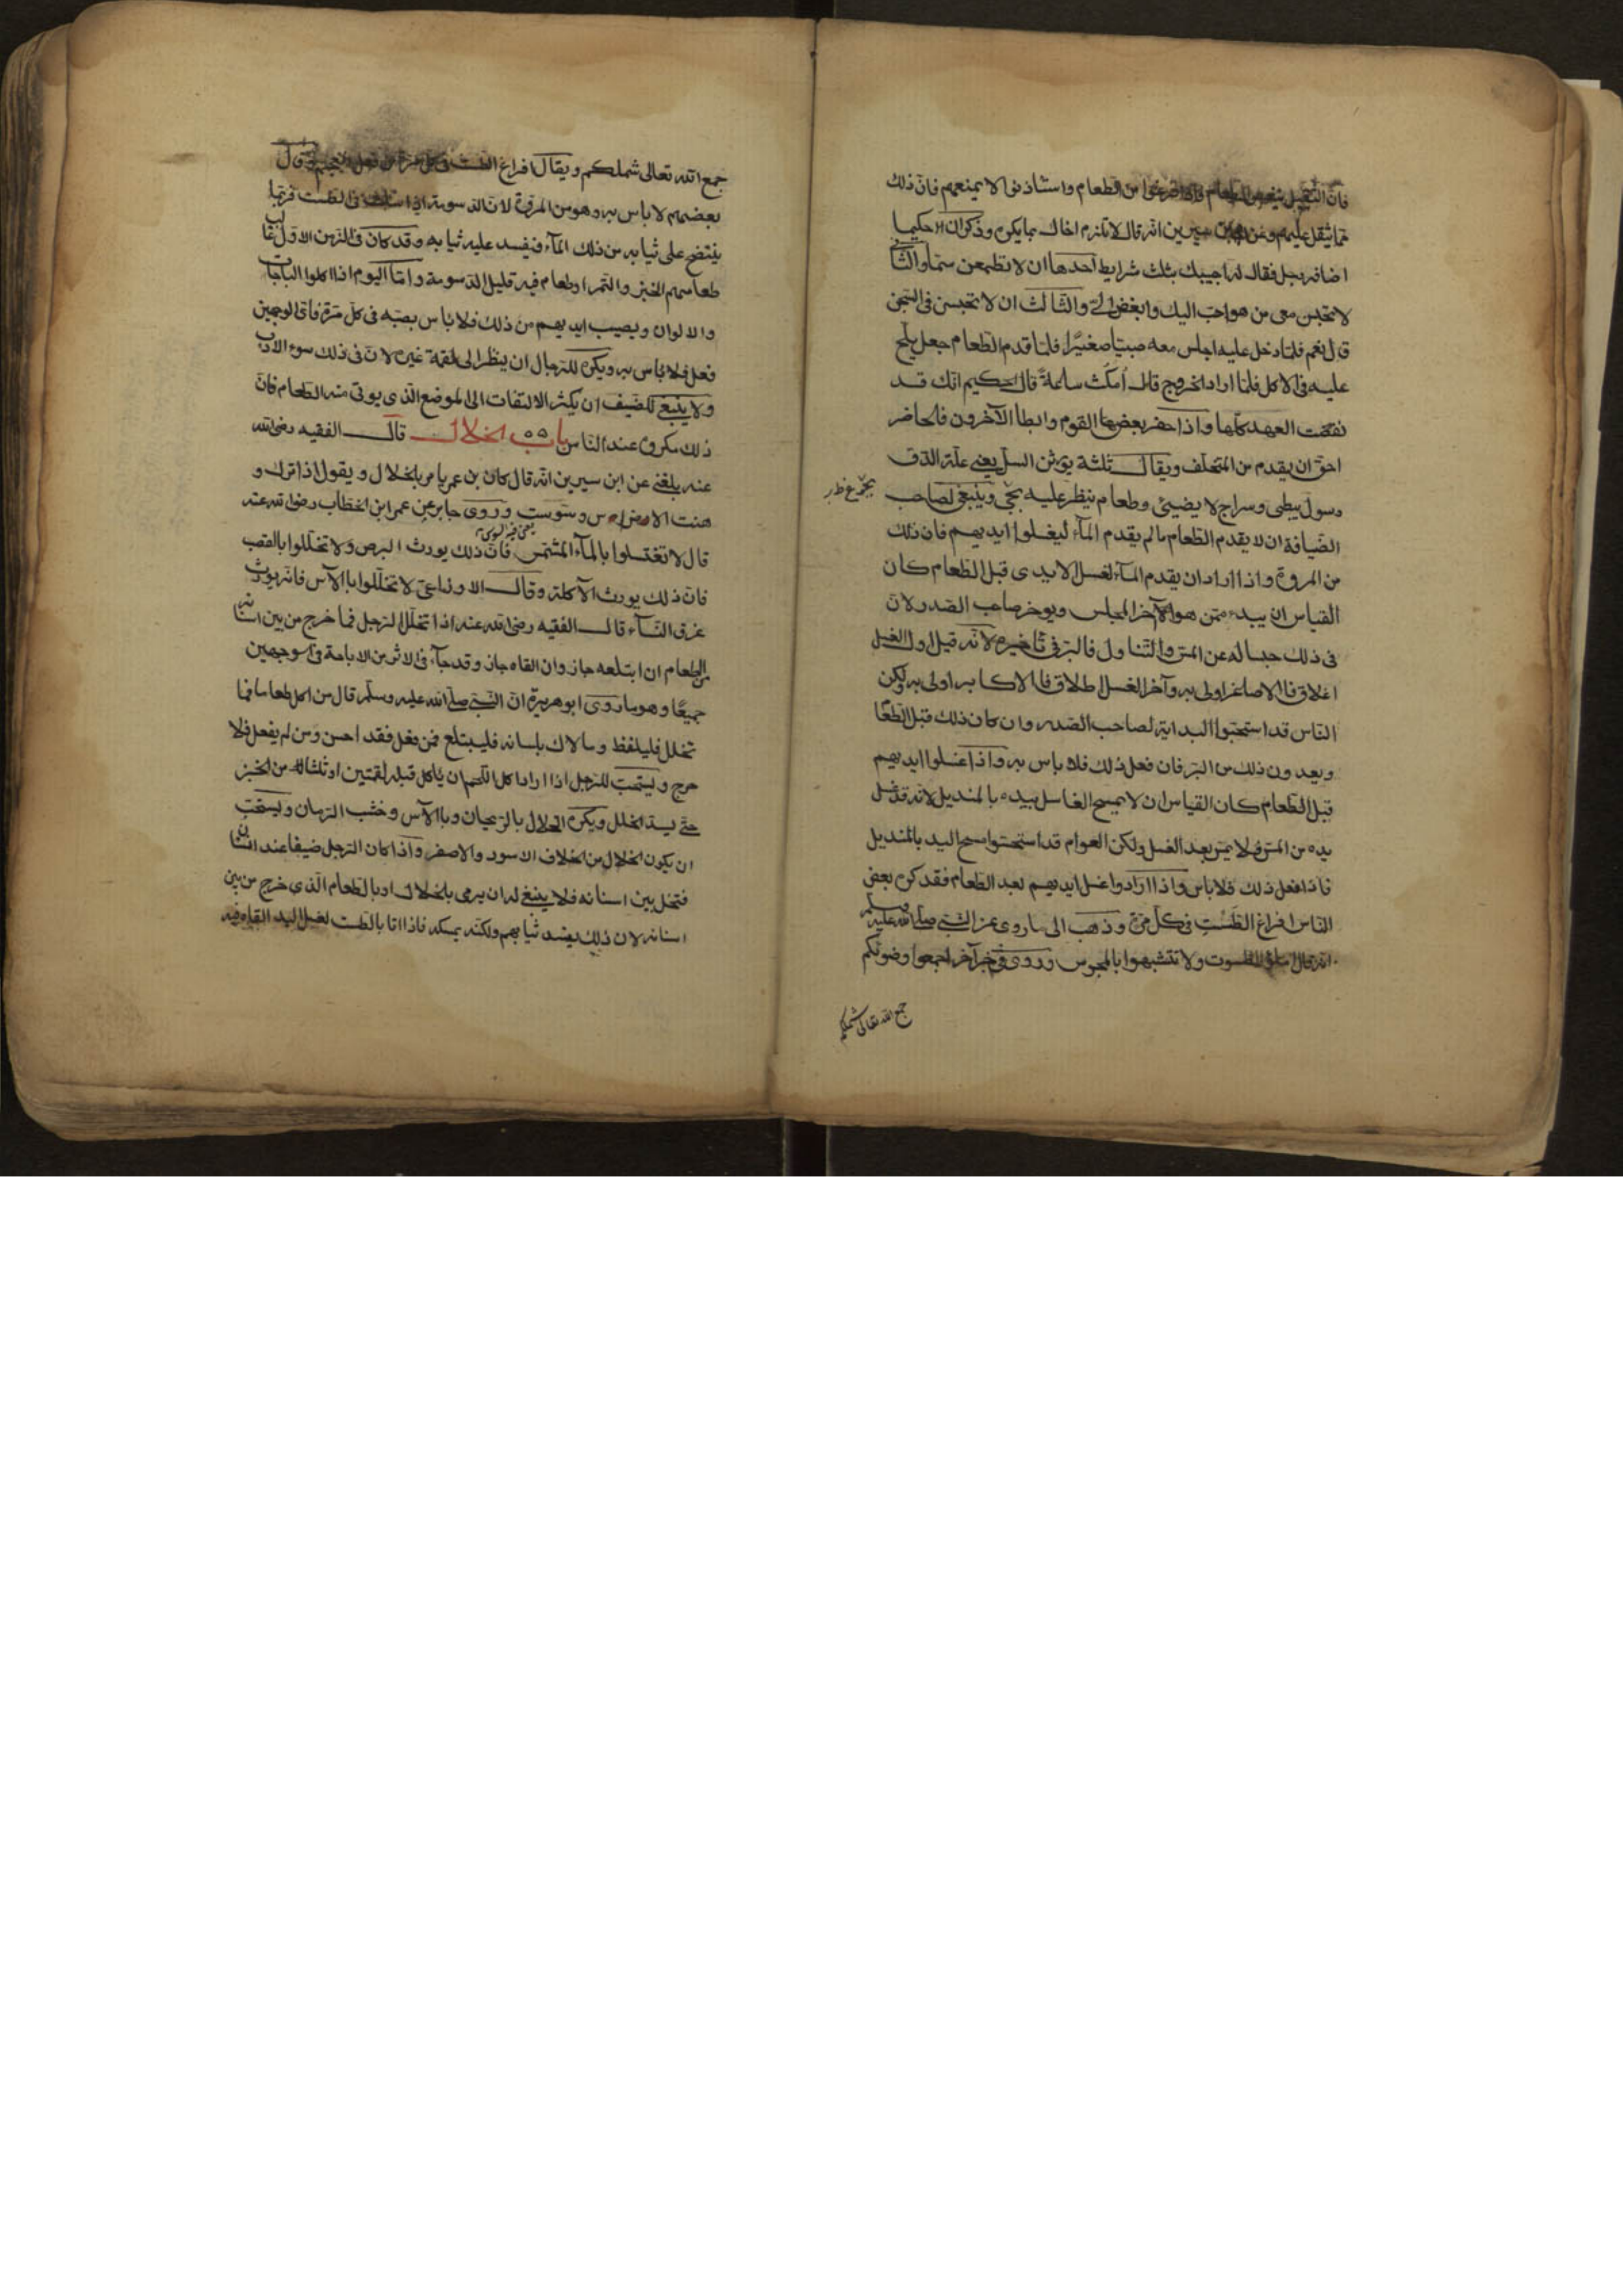 فان الثقيل ينغص الطعام واذا فرغوا من الطعام واستاذنوا لا يمنعهم فان ذلك
مما يثقل عليهم وعن سيرين انه قال لا تلزم اخاك بما يكره وذكر ان حكيما
اضافه رجل فقال له اجيبك بثلث شرايط احدها ان لا تطعمن سما والثانى
لا تجلس معى من هو احب اليك وابغض الىّ والثالث ان لا تحبسن فى السجن
قال نعم فلما دخل عليه اجلس معه صبيا صغيرا فلما قدم الطعام جعل يلح
عليه فى الاكل فلما اراد الخروج قال امكث ساعة قال الحكيم انك قد
نقضت العهد كلها واذا حضر بعض القوم وابطا الآخرون فالحاضر
احق ان يقدم من المتخلف ويقال ثلثة يورثن السل يعنى علة الدق
رسول يبطى وسراج لا يضيئ وطعام ينظر عليه يجئ وينبغى لصاحب
الضيافة ان لا يقدم الطعام ما لم يقدم الماء ليغسلوا ايديهم فان ذلك
من المروة واذا اراد ان يقدم الماء لغسل الايدى قبل الطعام كان
القياس ان يبدء ممن هو الآخر المجلس ويوخر صاحب الصدر لان
فى ذلك حبسا له عن المس والتناول فالبر فى تاخيره لانه قيل اول الغسل
اغلاق فالاصاغر اولى به وآخر الغسل اطلاق فالاكابر اولى به ولكن
الناس قد استحبوا البداية لصاحب الصدر وان كان ذلك قبل الطعا
ويعدون ذلك من البر فان فعل ذلك فلا باس به واذا غسلوا ايديهم
قبل الطعام كان القياس ان لا يمسح الغاسل بيده بالمنديل لانه قد غسل
يده من المس فلا يمس بعد الغسل ولكن العوام قد استحبوا مسح اليد بالمنديل
فاذا فعل ذلك فلا باس واذا ارادوا غسل ايديهم بعد الطعام فقد كره بعض
الناس افراغ الطست فى كل مرة وذهب الى ما روى عن النبى صلى الله عليه وسلم
انه قال املؤا الطسوت ولا تتشبهوا بالمجوس وروى فى خبر آخر اجمعوا وضوئكم
جمع الله تعالى شملكم
جمع الله تعالى شملكم ويقال افراغ الطست فى كل مرة من فعل الاعاجم وقال
بعضهم لا باس به وهو من المروة لان الدسومة اذا سالت فى الطست فربما
ينتضح على ثيابه من ذلك الماء فيفسد عليه ثيابه وقد كان فى الزمن الاول غالب
طعامهم الخبز والتمر او طعام فيه قليل الدسومة واما اليوم اذا اكلوا الباجات
والالوان ويصيب ايديهم من ذلك فلا باس بصبه فى كل مرة فاى الوجهين
فعل فلا باس به ويكره للرجال ان ينظر الى لقمة غيره لان فى ذلك سوء الادب
ولا ينبغى للضيف ان يكثر الالتفات الى الموضع الذى يوتى منه الطعام فان
ذلك مكروه عند الناس باب الخلال قال الفقيه رضى الله
عنه بلغنى عن ابن سيرين انه قال كان بن عمر يامر بالخلال ويقول اذا ترك و
هنت الاضراس وسوست وروى جابر عن عمر ابن الخطاب رضى الله عنه
قال لا تغتسلوا بالماء المشمس فان ذلك يورث البرص ولا تخللوا بالقصب
فان ذلك يورث الآكلة وقال الاوزاعى لا تخللوا باالآس فانه يورث
عرق النساء قال الفقيه رضى الله عنه اذا تخلل الرجل فما خرج من بين اسنانه
من الطعام ان ابتلعه جاز وان القاه جاز وقد جاء فى الاثر من الاباحة فى الوجهين
جميعا وهو ما روى ابو هريرة ان النبى صلى الله عليه وسلم قال من اكل طعاما فما
تخلل فليلفظ وما لاك بلسانه فليبتلع فمن فعل فقد احسن ومن لم يفعل فلا
حرج ويستحب للرجل اذا اراد اكل اللحم ان ياكل قبله لقمتين او ثلثا من الخبز
حتى يسد الخلل ويكره الخلال بالريحان وباالآس وخشب الرمان ويستحب
ان يكون الخلال من الخلاف الاسود والاصفر واذا كان الرجل ضيفا عند انسان
فتخلل بين اسنانه فلا ينبغى له ان يرمى بالخلال او بالطعام الذى خرج من بين
اسنانه لان ذلك يفسد ثيابهم ولكنه يمسكه فاذا اتا بالطست لغسل اليد القاه فيه